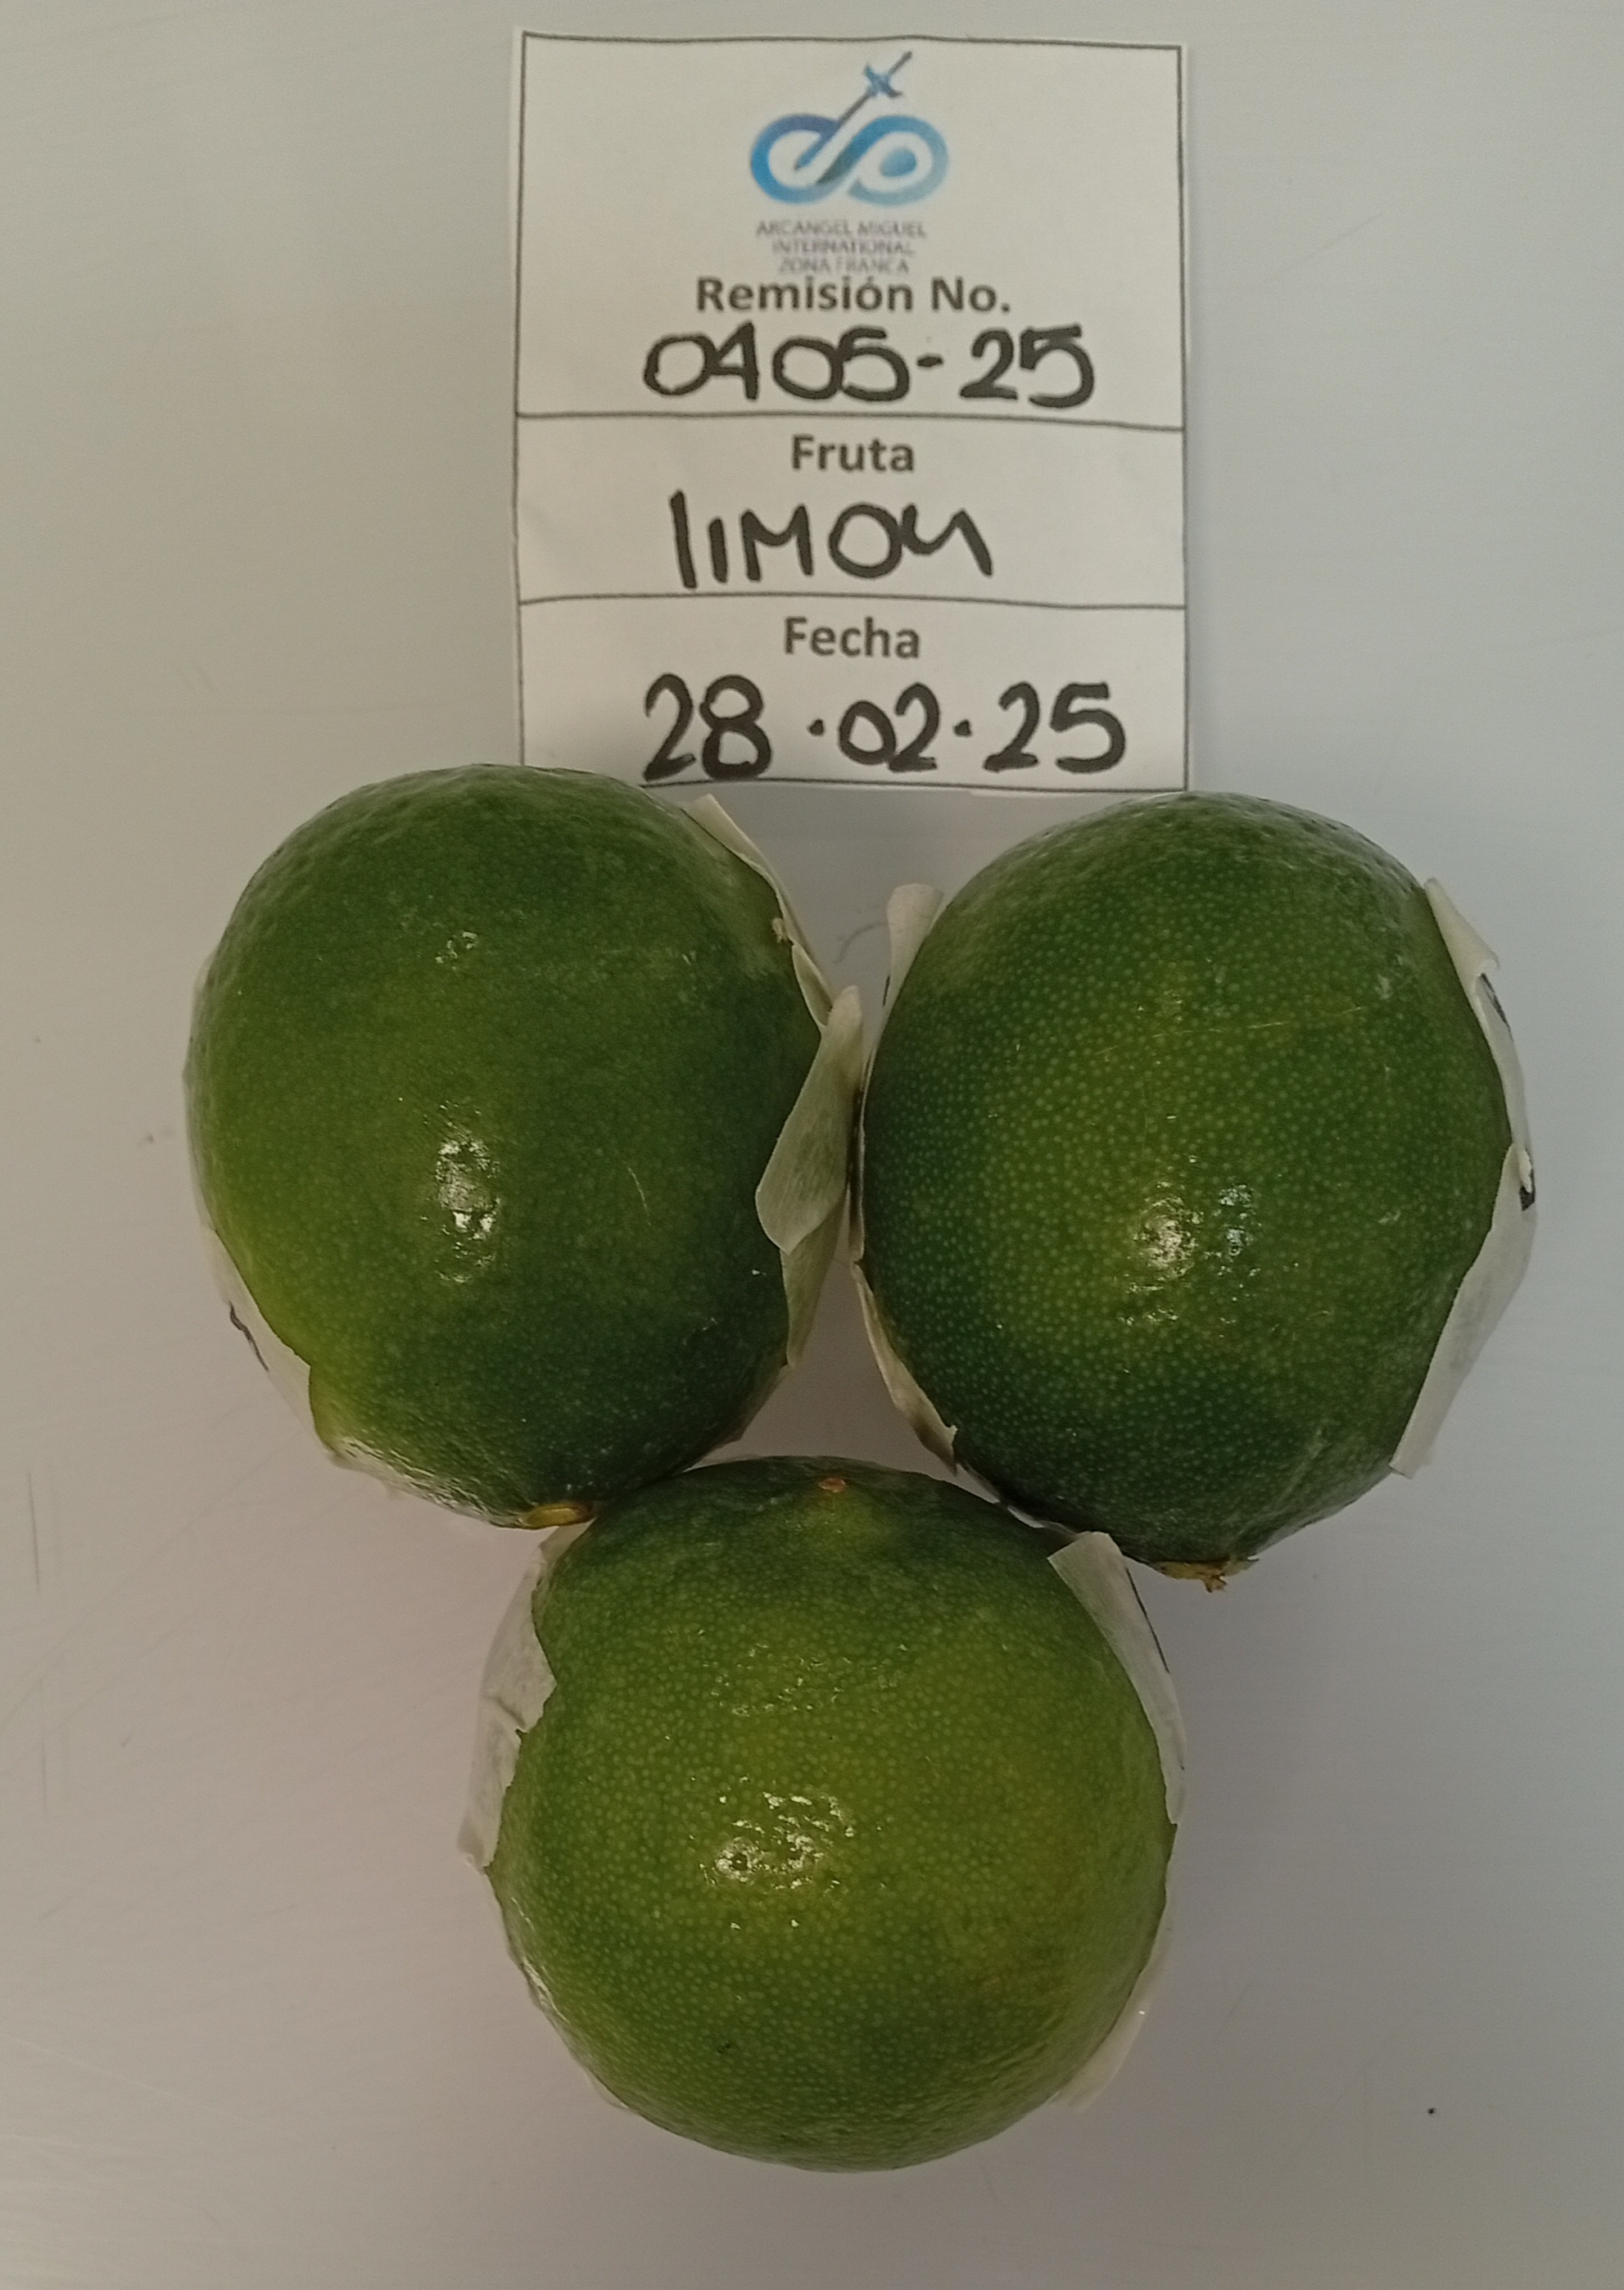 ARCANGEL MIGUEL
INTERNATIONAL
ZONA FRANCA
Remisión No.
0405-25
Fruta
lIMON
Fecha
28.02.25